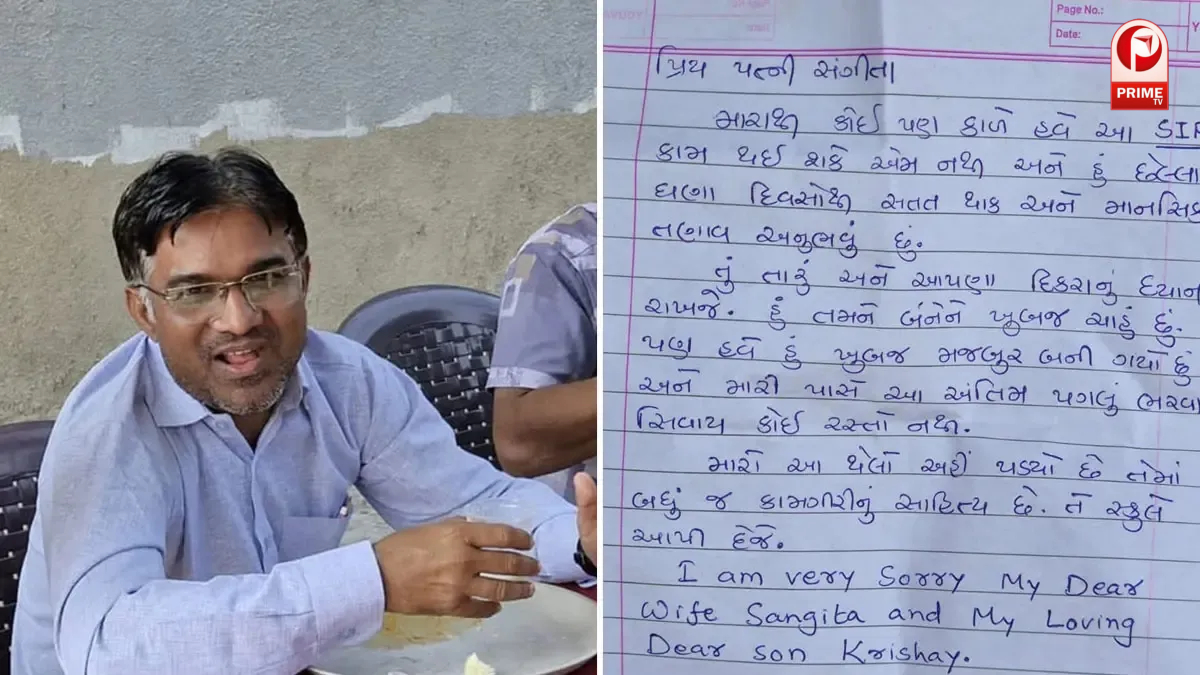 Page No.:
Date:
PRIME
TV
પ્રિય પત્ની સંગીતા
મારાથી કોઈ પણ કાળે હવે આ SIR
કામ થઈ શકે એમ નથી અને હું છેલ્લા
ઘણા દિવસોથી સતત થાક અને માનસિક
તણાવ અનુભવું છું.
તું તારું અને આપણા દિકરાનું ધ્યાન
રાખજે. હું તમને બંનેને ખુબજ ચાહું છું.
પણ હવે હું ખુબજ મજબુર બની ગયો છું
અને મારી પાસે આ અંતિમ પગલું ભરવા
સિવાય કોઈ રસ્તો નથી.
મારો આ થેલો અહીં પડ્યો છે તેમાં
બધું જ કામગીરીનું સાહિત્ય છે. તે સ્કુલે
આપી દેજે.
I am very Sorry My Dear
Wife Sangita and My Loving
Dear son Krishay.